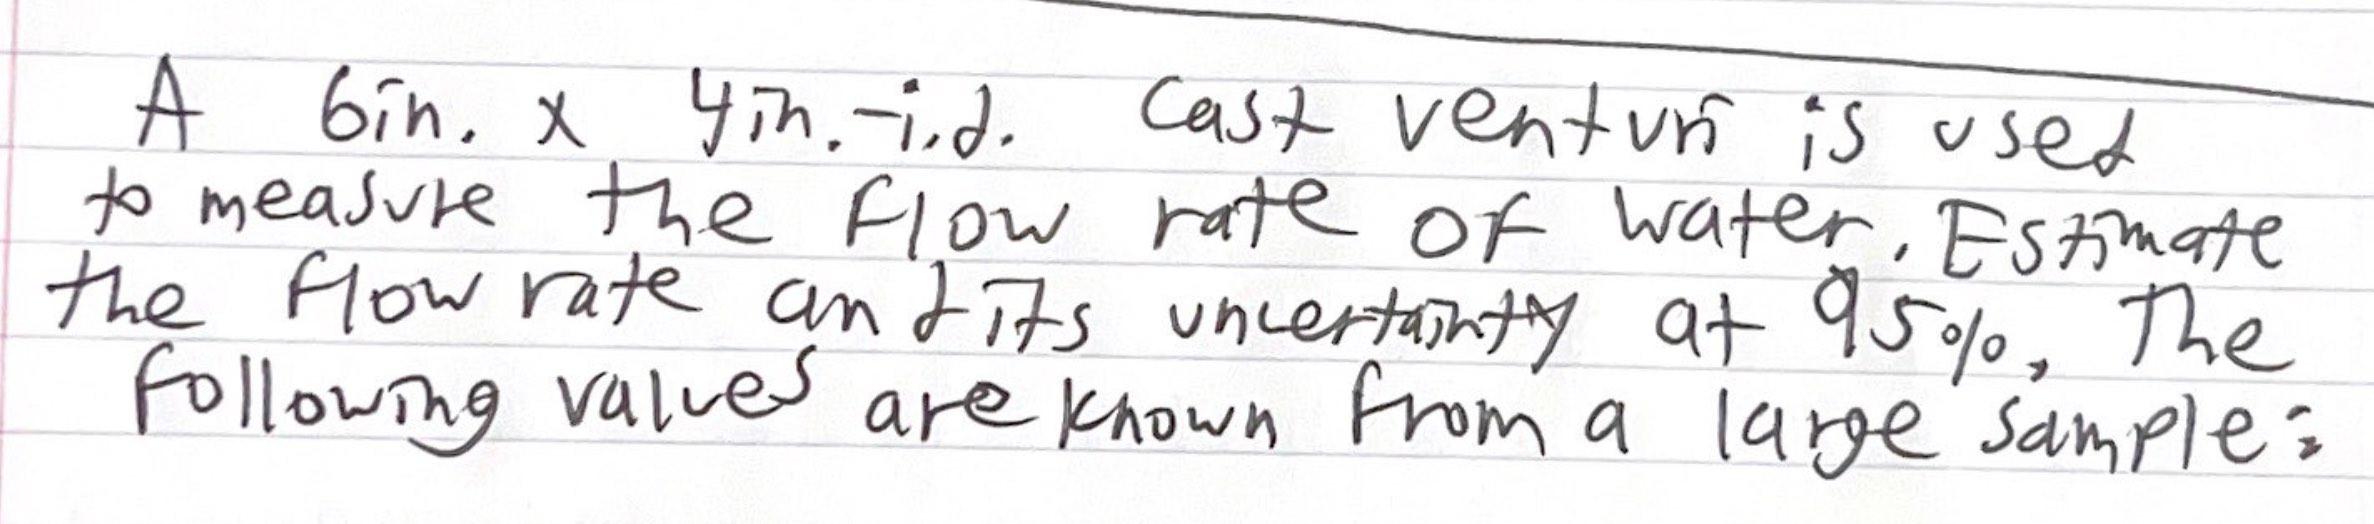 A 6in. x 4in.-i.d. Cast venturi is used
to measure the flow rate of water. Estimate
the flow rate and its uncertainty at 95%, The
following values are known from a large sample: